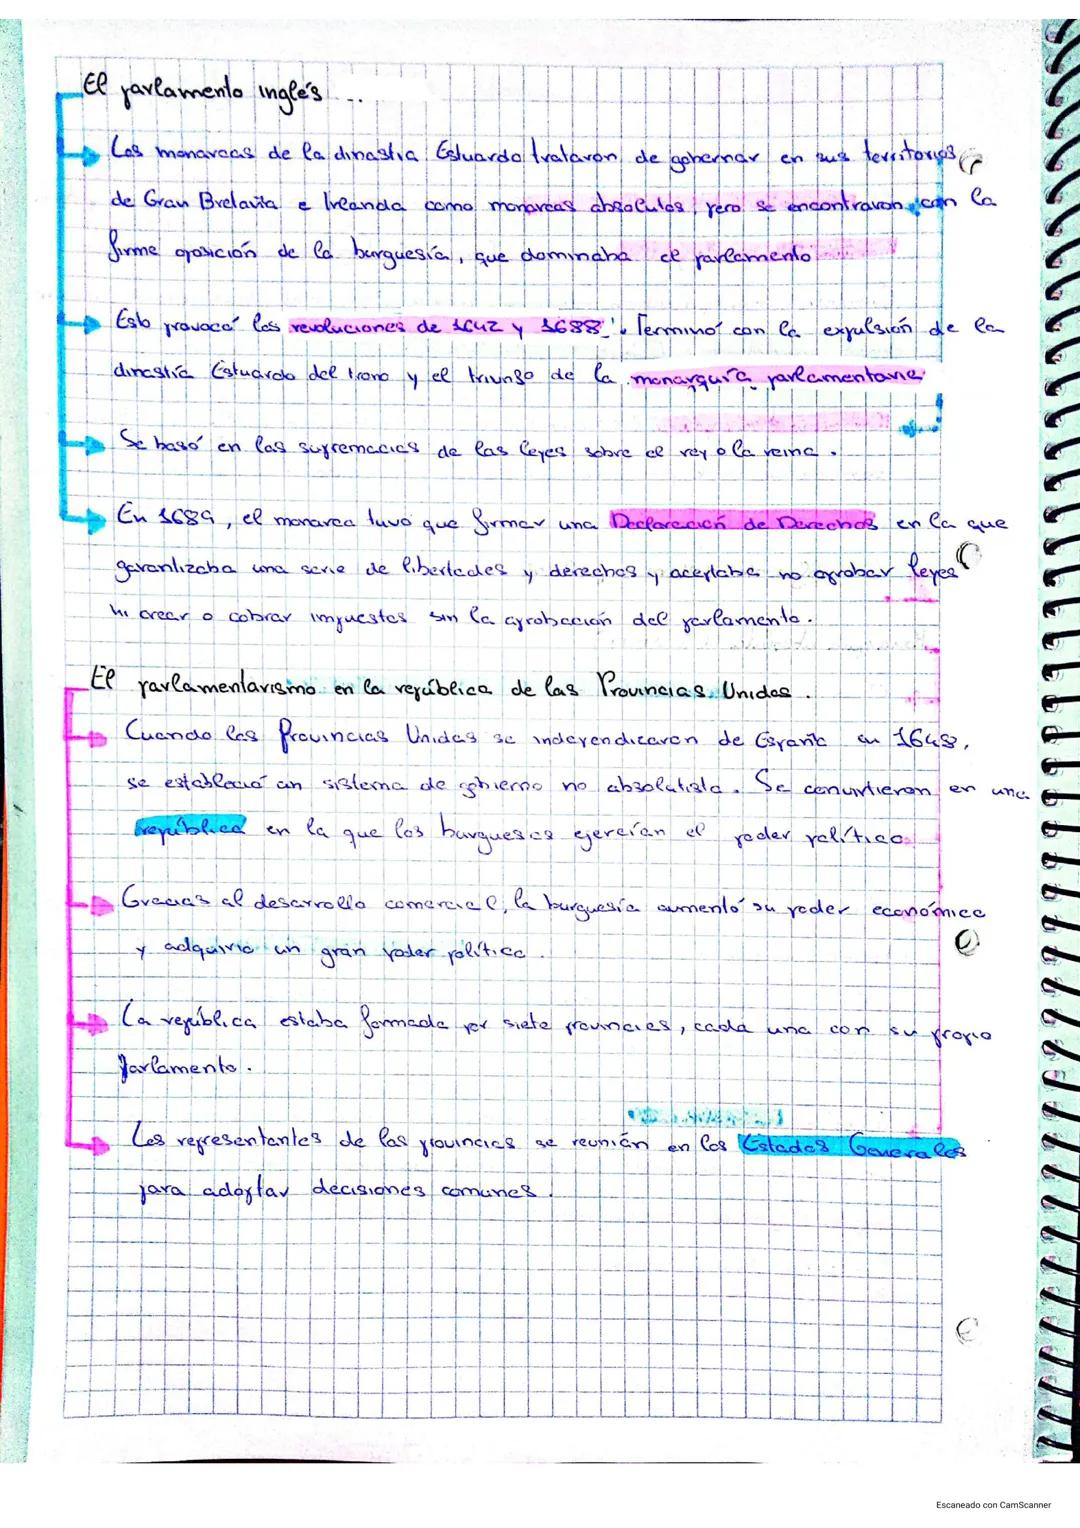 El parlamento inglés...
Los monarcas de la dinastía Estuardo trataron de gobernar en sus territorios
de Gran Bretaña e Irlanda como monarcas absolutos, pero se encontraron con la
firme oposición de la burguesía, que dominaba el parlamento
Esto provocó las revoluciones de 1642 y 1688. Terminó con la expulsión de la
dinastía Estuardo del trono y el triunfo de la monarquía parlamentaria
Se basó en las supremacias de las leyes sobre el rey o la reina.
En 1689, el monarca tuvo que firmar una Declaración de Derechos en la que
garantizaba una serie de libertades y derechos y aceptaba no aprobar leyes
ni crear o cobrar impuestos sin la aprobación del parlamento.
El parlamentarismo en la república de las Provincias Unidas.
Cuando las Provincias Unidas se independizaron de España en 1648,
se estableció un sistema de gobierno no absolutista. Se convirtieron en una
república en la que los burgueses ejercían el poder político
Gracias al desarrollo comercial, la burguesía aumentó su poder económico
y adquirió un gran poder político.
La república estaba formada por siete provincias, cada una con su propio
Parlamento.
Los representantes de las provincias se reunían en los Estados Generales
para adoptar decisiones comunes.
Escaneado con CamScanner